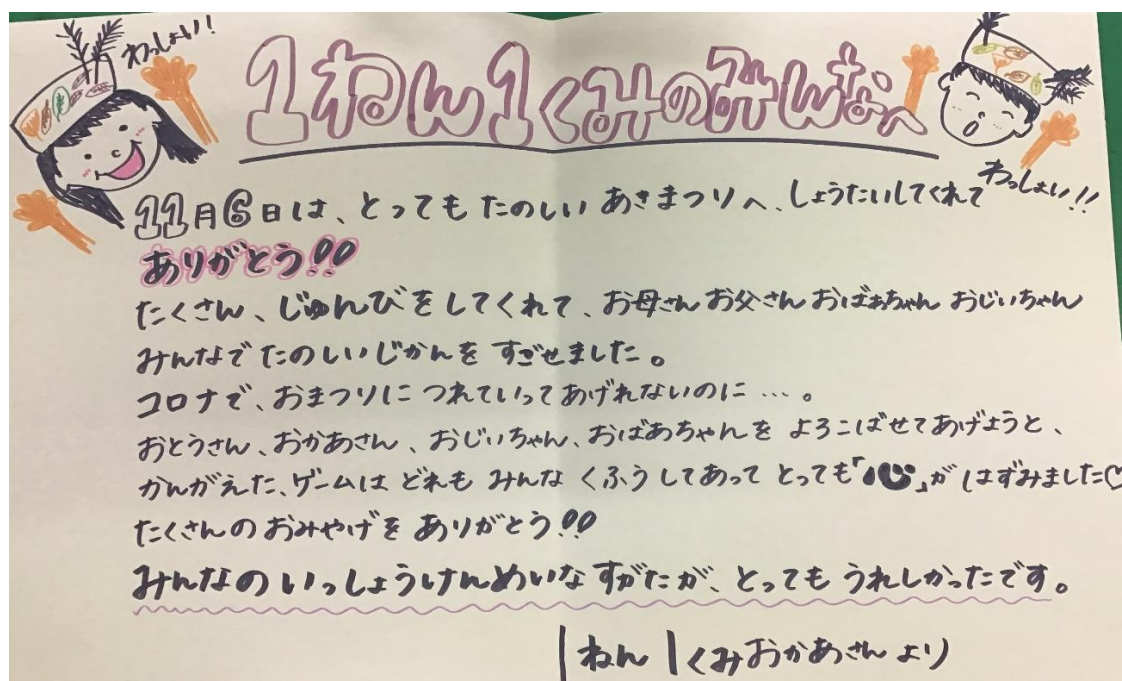 わっしょい!
1ねん1くみのみんなへ
わっしょい!!
11月6日は、とってもたのしい あきまつりへ、しょうたいしてくれて
ありがとう!!
たくさん、じゅんびをしてくれて、お母さんお父さんおばあちゃん おじいちゃん
みんなでたのしいじかんを すごせました。
コロナで、おまつりに つれていってあげれないのに…。
おとうさん、おかあさん、おじいちゃん、おばあちゃんを よろこばせてあげようと、
かんがえた、ゲームは どれも みんな くふうしてあって とっても「心」が はずみました♡
たくさんの おみやげを ありがとう!!
みんなの いっしょうけんめいな すがたが、とっても うれしかったです。
1ねん1くみおかあさんより